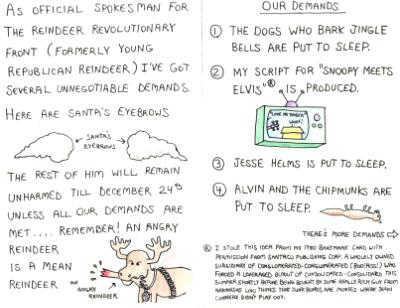 AS OFFICIAL SPOKESMAN FOR
THE REINDEER REVOLUTIONARY
FRONT (FORMERLY YOUNG
REPUBLICAN REINDEER) I'VE GOT
SEVERAL UNNEGOTIABLE DEMANDS.
HERE ARE SANTA'S EYEBROWS
SANTA'S
EYEBROWS
THE REST OF HIM WILL REMAIN
UNHARMED TILL DECEMBER 24th
UNLESS ALL OUR DEMANDS ARE
MET.... REMEMBER! AN ANGRY
REINDEER
IS A MEAN
REINDEER
ANGRY
REINDEER
OUR DEMANDS
① THE DOGS WHO BARK JINGLE
BELLS ARE PUT TO SLEEP.
② MY SCRIPT FOR "SNOOPY MEETS
ELVIS" IS PRODUCED.
LOVE ME TENDER
WOOF!
③ JESSE HELMS IS PUT TO SLEEP.
④ ALVIN AND THE CHIPMUNKS ARE
PUT TO SLEEP.
THERE'S MORE DEMANDS
I STOLE THIS IDEA FROM MY 1980 CARD WITH
PERMISSION FROM PUBLISHING CORP. A WHOLLY OWNED
SUBSIDIARY OF CONGLOMERATED-CONGLOMERATED
FORCED A LEVERAGED BUYOUT OF CONSOLIDATED CONSOLIDATED THIS
SUMMER SHORTLY BEFORE BEING BOUGHT BY SOME REALLY RICH GUY FROM
WHO THINKS THAT JUNK BONDS ARE MOVIES WHERE SEAN
CONNERY DIDN'T PLAY 007.